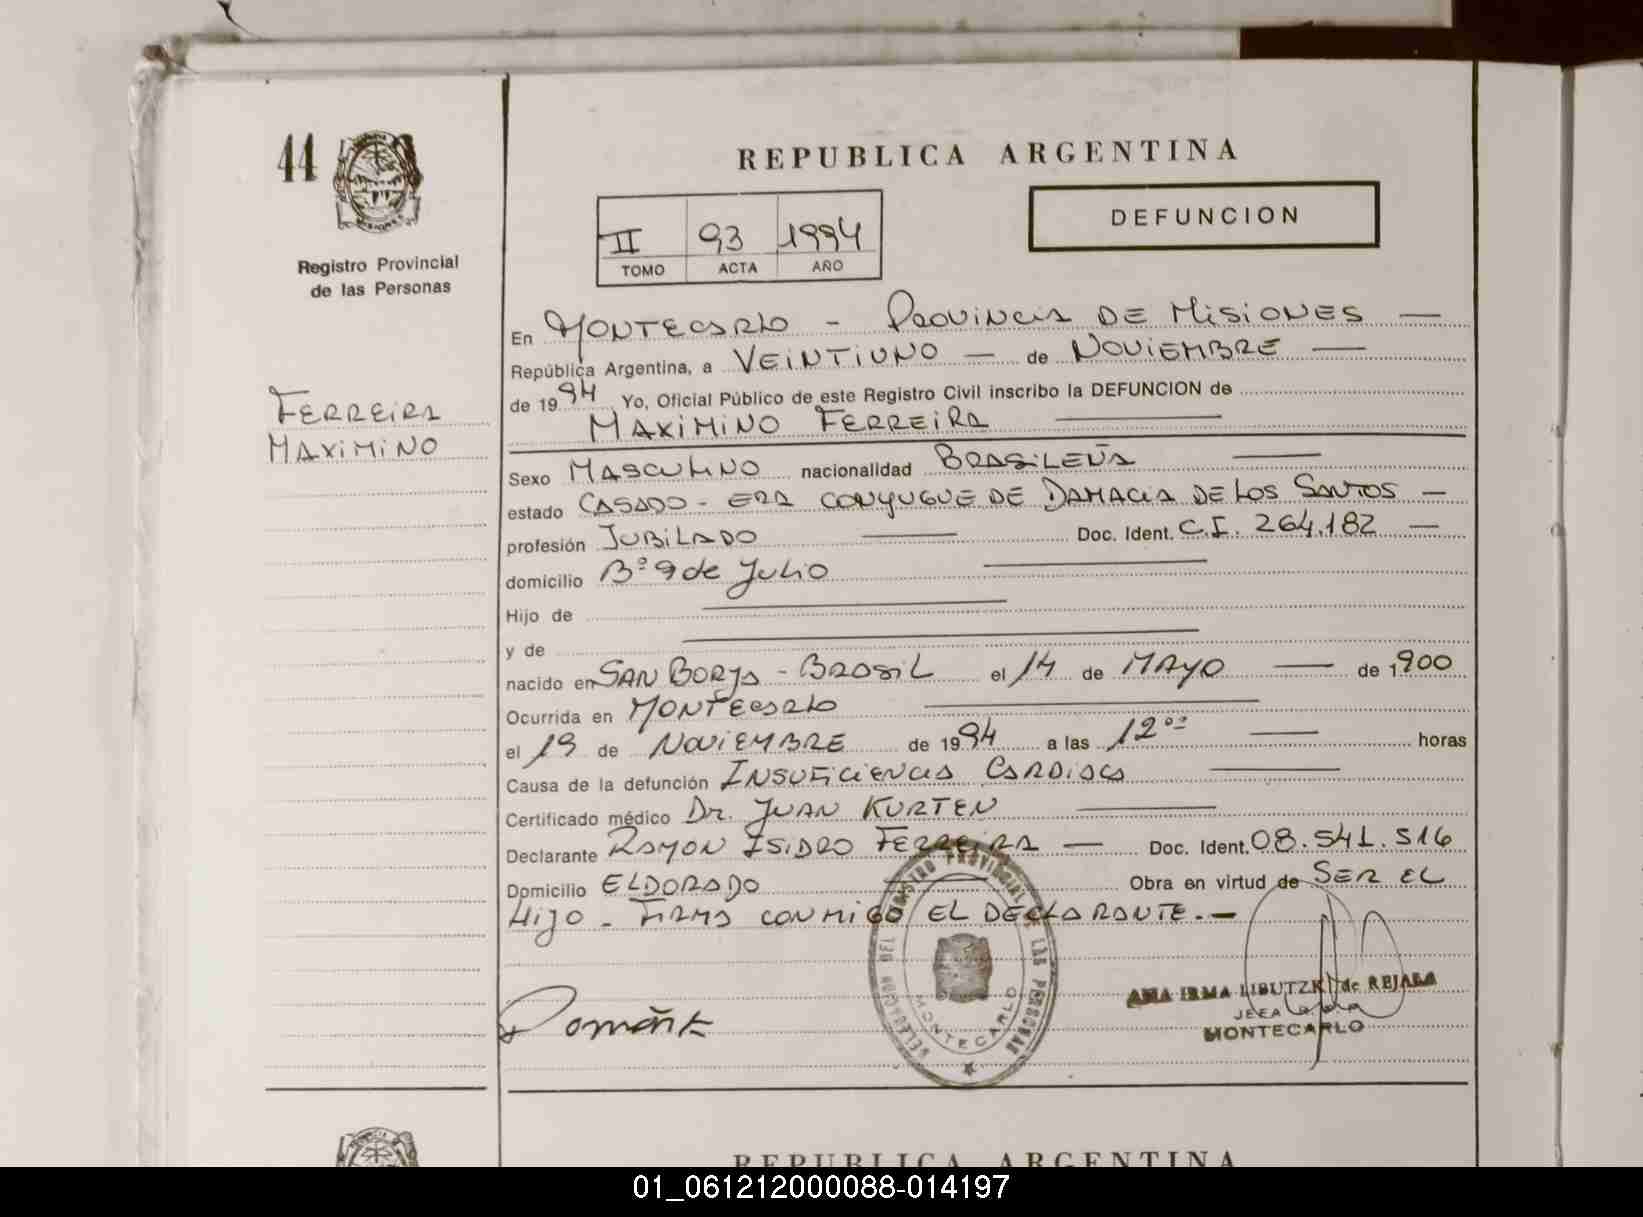 44
REPUBLICA ARGENTINA
DEFUNCION
II 93 1994
TOMO ACTA AÑO
Registro Provincial
de las Personas
FERREIRA
MAXIMINO
En MONTECARLO - PROVINCIA DE MISIONES —
República Argentina, a VEINTIUNO — de NOVIEMBRE —
de 1994 Yo, Oficial Público de este Registro Civil inscribo la DEFUNCION de
MAXIMINO FERREIRA
Sexo MASCULINO nacionalidad BRASILEÑA
estado CASADO - ERA CONYUGUE DE DAMACIA DE LOS SANTOS —
profesión JUBILADO Doc. Ident. C.I. 264.182 —
domicilio Bº 9 de JULIO
Hijo de
y de
nacido en SAN BORJA - BRASIL el 14 de MAYO — de 1900
Ocurrida en MONTECARLO
el 19 de NOVIEMBRE de 1994 a las 12ºº — horas
Causa de la defunción INSUFICIENCIA CARDIACA
Certificado médico Dr. JUAN KURTEN
Declarante RAMON ISIDRO FERREIRA — Doc. Ident. 08.541.516
Domicilio ELDORADO Obra en virtud de SER EL
HIJO - FIRMA CONMIGO EL DECLARANTE. —
DELEGACION DEL REGISTRO PROVINCIAL DE LAS PERSONAS
MONTECARLO
ANA IRMA LIBUTZKI de REJALA
JEFA
MONTECARLO
REPUBLICA ARGENTINA
01_061212000088-014197